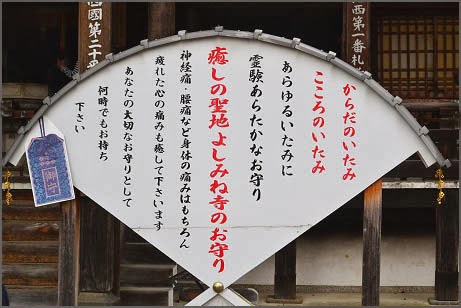 からだのいたみ
こころのいたみ
あらゆるいたみに
霊験あらたかなお守り
癒しの聖地よしみね寺のお守り
神経痛・腰痛など身体の痛みはもちろん
疲れた心の痛みも癒して下さいます
あなたの大切なお守りとして
何時でもお持ち
下さい
西第一番札
西國第二十
御守